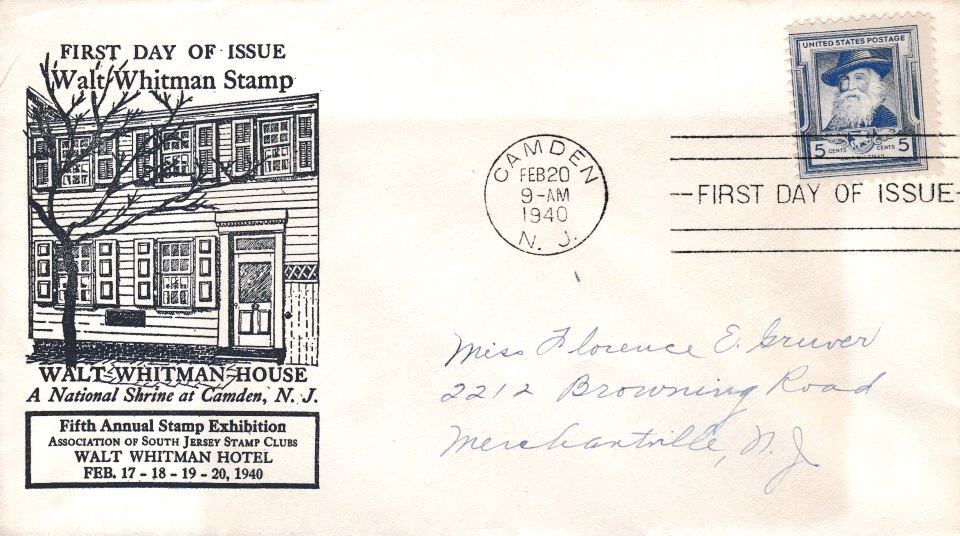 FIRST DAY OF ISSUE
Walt Whitman Stamp
WALT WHITMAN HOUSE
A National Shrine at Camden, N. J.
Fifth Annual Stamp Exhibition
ASSOCIATION OF SOUTH JERSEY STAMP CLUBS
WALT WHITMAN HOTEL
FEB. 17 - 18 - 19 - 20, 1940
CAMDEN
FEB 20
9-AM
1940
N. J.
UNITED STATES POSTAGE
5 CENTS CENTS 5
FIRST DAY OF ISSUE
Miss Florence E. Gruver
2212 Browning Road
Merchantville, N. J.